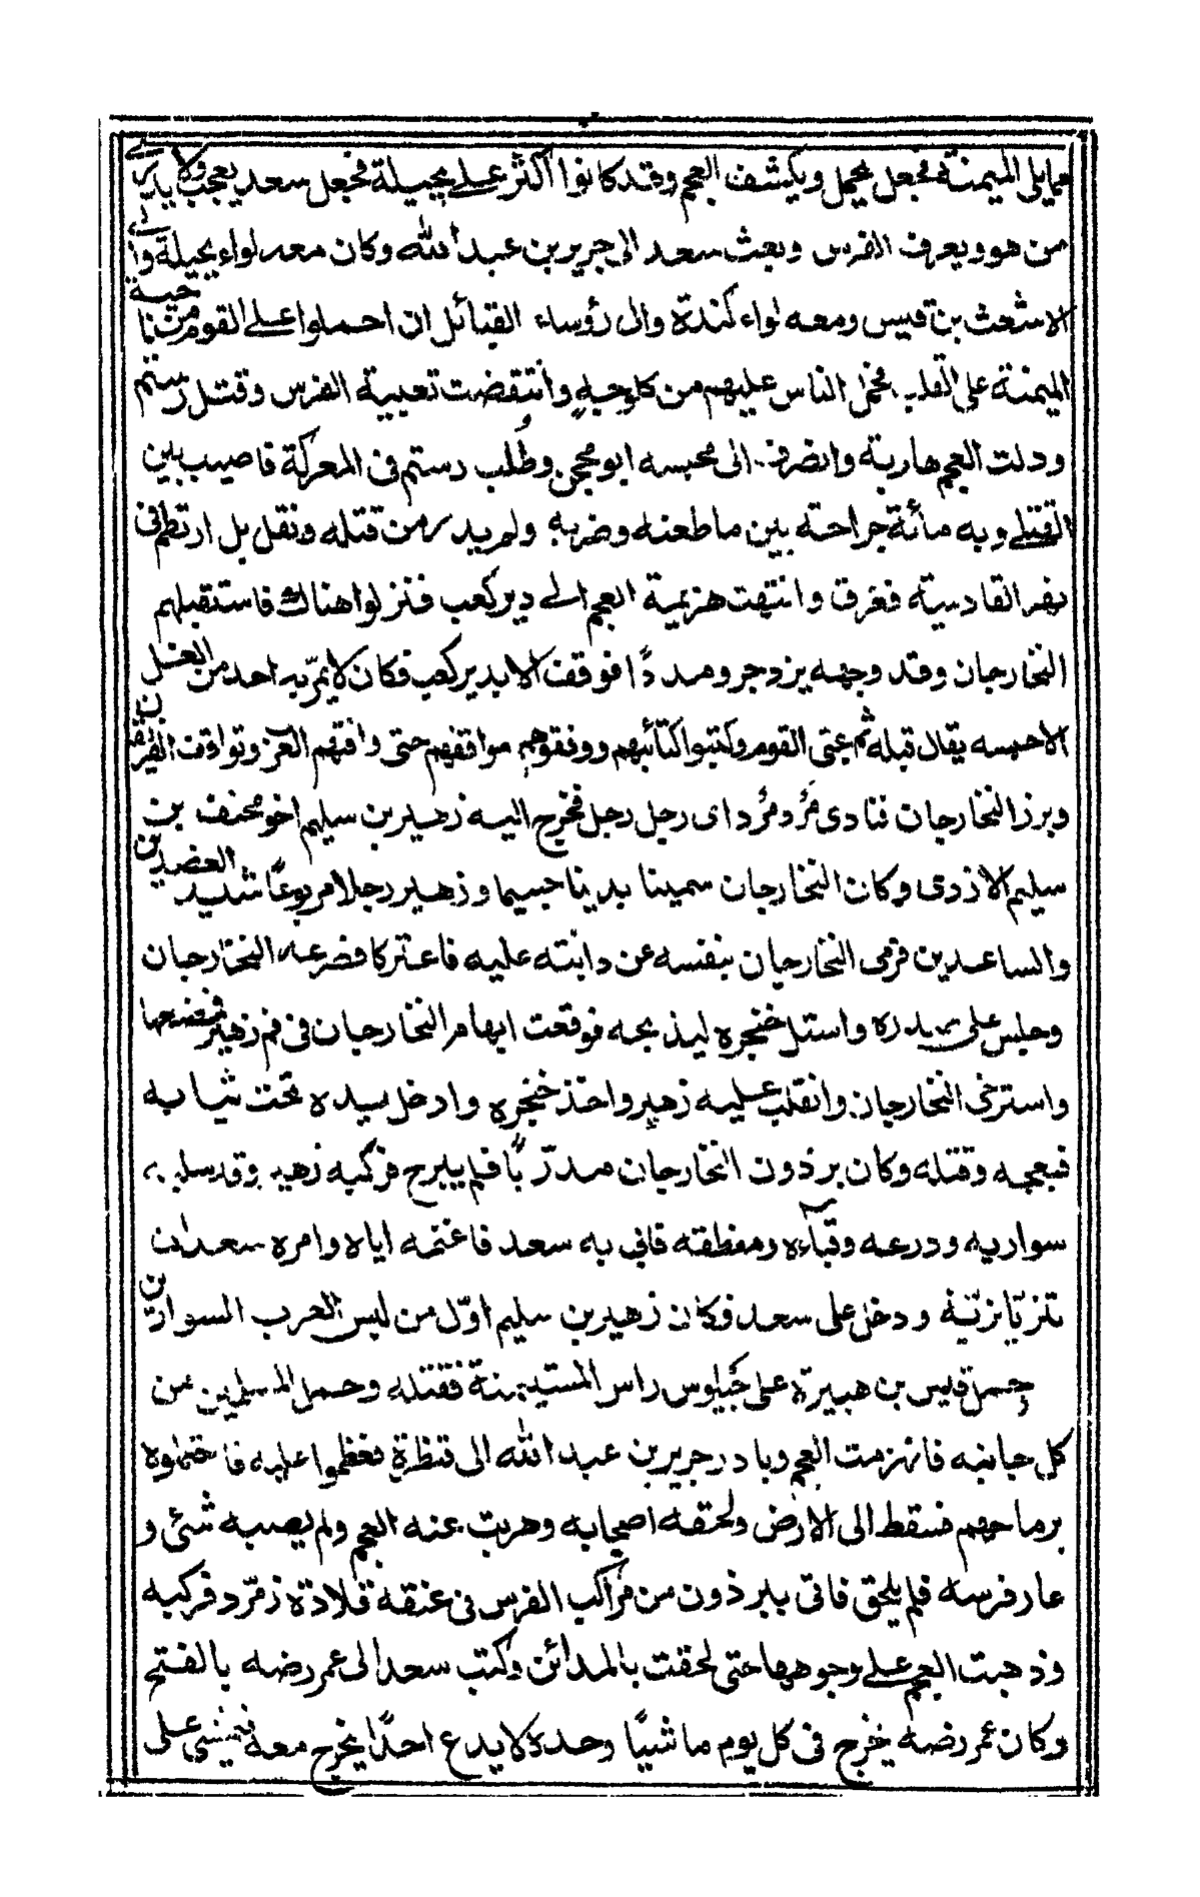 مما يلى الميمنة فجعل يحمل ويكشف العجم وقد كانوا اكثر على بجيلة فجعل سعد يعجب ولا يدرى
من هو ويعرف الفرس وبعث سعد الى جرير بن عبد الله وكان معه لواء بجيلة والى
الاشعث بن قيس ومعه لواء كندة والى رؤساء القبائل ان احملوا على القوم من ناحية
الميمنة على القلب فحمل الناس عليهم من كل وجه وانتقضت تعبية الفرس وقتل رستم
وولت العجم هاربة وانصرف الى محبسه ابو محجن وطلب رستم فى المعركة فاصيب بين
القتلى وبه مائة جراحة بين ما طعنه وضربه ولم يدر من قتله ونقل بل ارتطم فى
نهر القادسية فغرق وانتهت هزيمة العجم الى دير كعب فنزلوا هناك فاستقبلهم
النخارجان وقد وجهه يزدجر ومددًا فوقف الا بدير كعب فكان لا يمرّ به احد من الفل
الا حبسه يقال قبله ثم عبى القوم وكتبوا كتائبهم ووقفوهم مواقفهم حتى وافتهم العرب وتواقف الفريقان
وبرز النخارجان فنادى مَرْد ومَرْد اى رجل رجل فخرج اليه زهير بن سليم اخو مخنف بن
سليم الازدى وكان النخارجان سمينا بدينا جسيما وزهير رجلا مربوعًا شديد العضدين
والساعدين فرمى النخارجان بنفسه عن دابته عليه فاعتركا فصرعه النخارجان
وجلس على صدره واستل خنجره ليذبحه فوقعت ابهام النخارجان فى فم زهير فمضغها
واسترخى النخارجان وانقلب عليه زهير واخذ خنجره وادخل يده تحت ثيابه
فبعجه وقتله وكان برذون النخارجان مدرّبًا فلم يبرح فركبه زهير وقد سلبه
سواريه ودرعه وقباءه ومنطقته فاتى به سعد فاغنمه اياه وامره سعد ان
يتزيّا بزيّه ودخل على سعد فكان زهير بن سليم اوّل من لبس العرب السوارين
وحمل قيس بن هبيرة على جيلوس راس المستميتة فقتله وحمل المسلمين من
كل جانبه فانهزمت العجم وبادر جرير بن عبد الله الى قنطرة فعطفوا عليه فاحتملوه
برماحهم فسقط الى الارض ولحقه اصحابه وهربت عنه العجم ولم يصبه شئ و
عار فرسه فلم يلحق فاتى ببرذون من مراكب الفرس فى عنقه قلادة زمرّد فركبه
وذهبت العجم على وجوهها حتى لحقت بالمدائن وكتب سعد الى عمر رضه بالفتح
وكان عمر رضه يخرج فى كل يوم ماشيًا وحده لا يدع احدًا يخرج معه فيمشى على